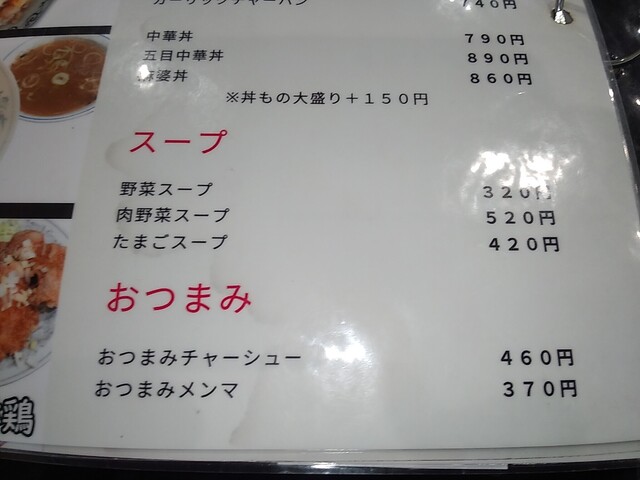 ガーリックチャーハン 740円
中華丼 790円
五目中華丼 890円
麻婆丼 860円
※丼もの大盛り＋１５０円
スープ
野菜スープ 320円
肉野菜スープ 520円
たまごスープ 420円
おつまみ
おつまみチャーシュー 460円
おつまみメンマ 370円
鶏